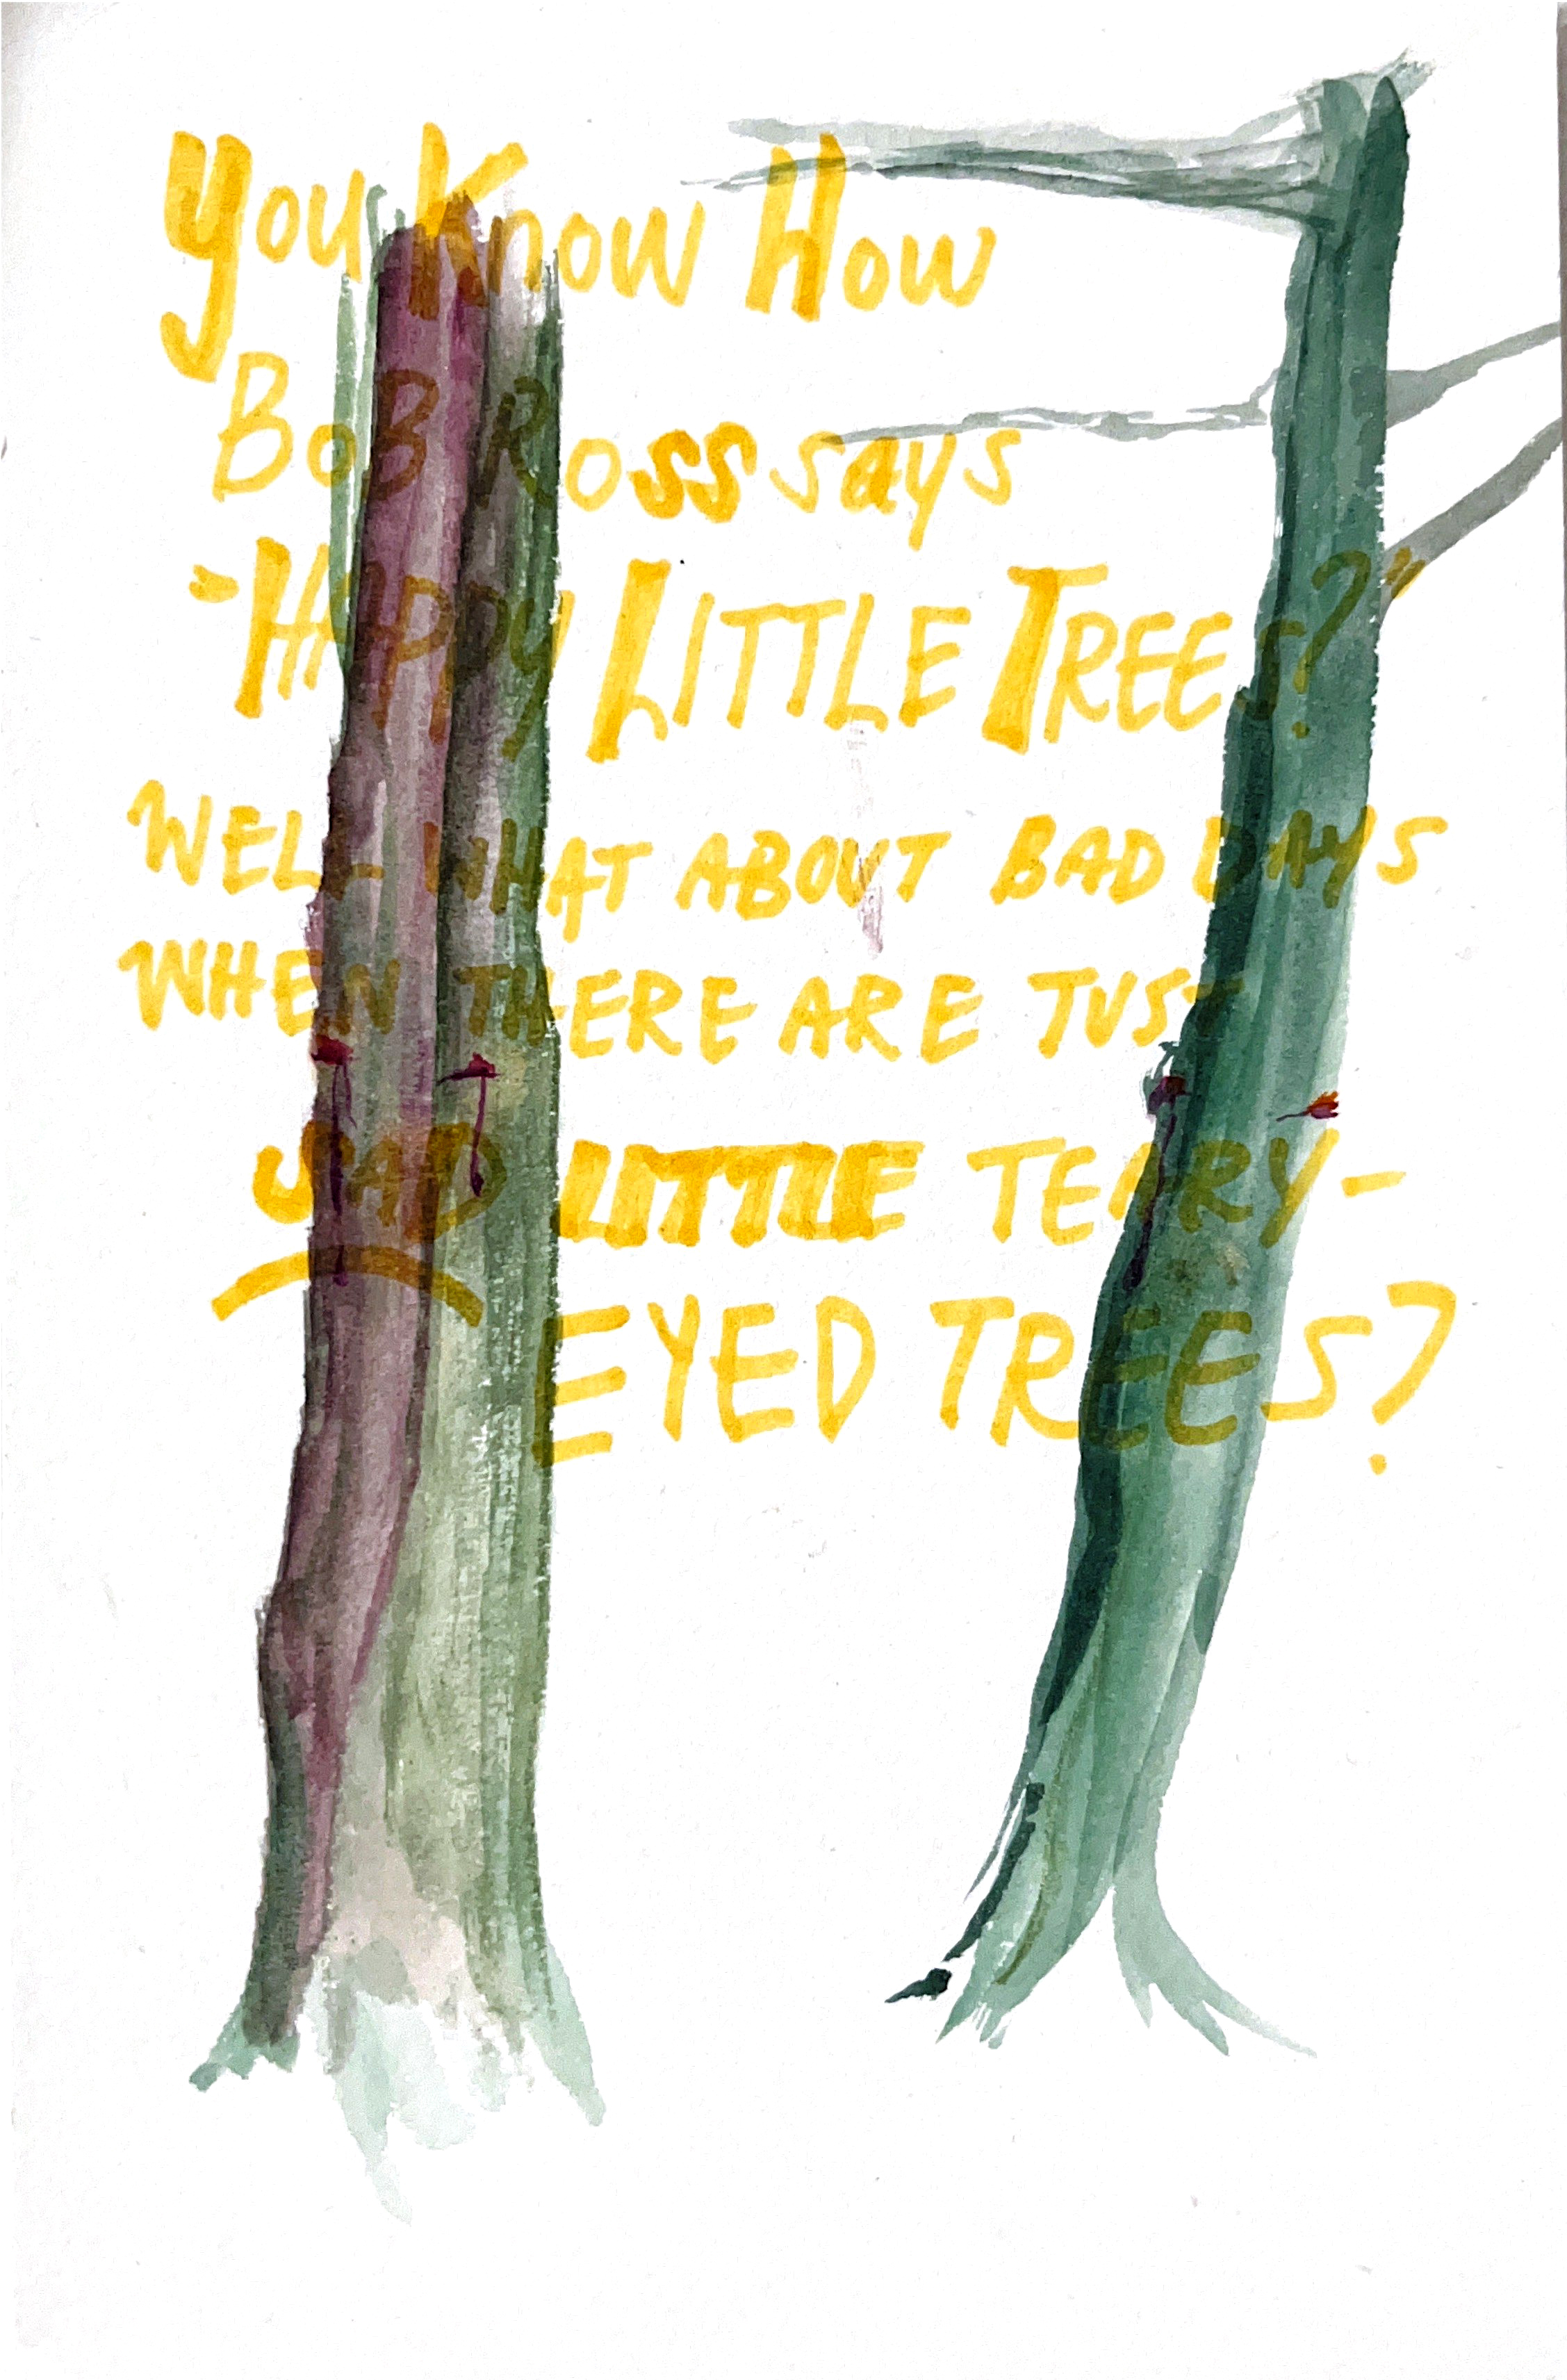 You Know How
BoB Ross says
"HAPPY LITTLE TREES?"
WELL WHAT ABOUT BAD DAYS
WHEN THERE ARE JUST
SAD LITTLE TEARY-
EYED TREES?